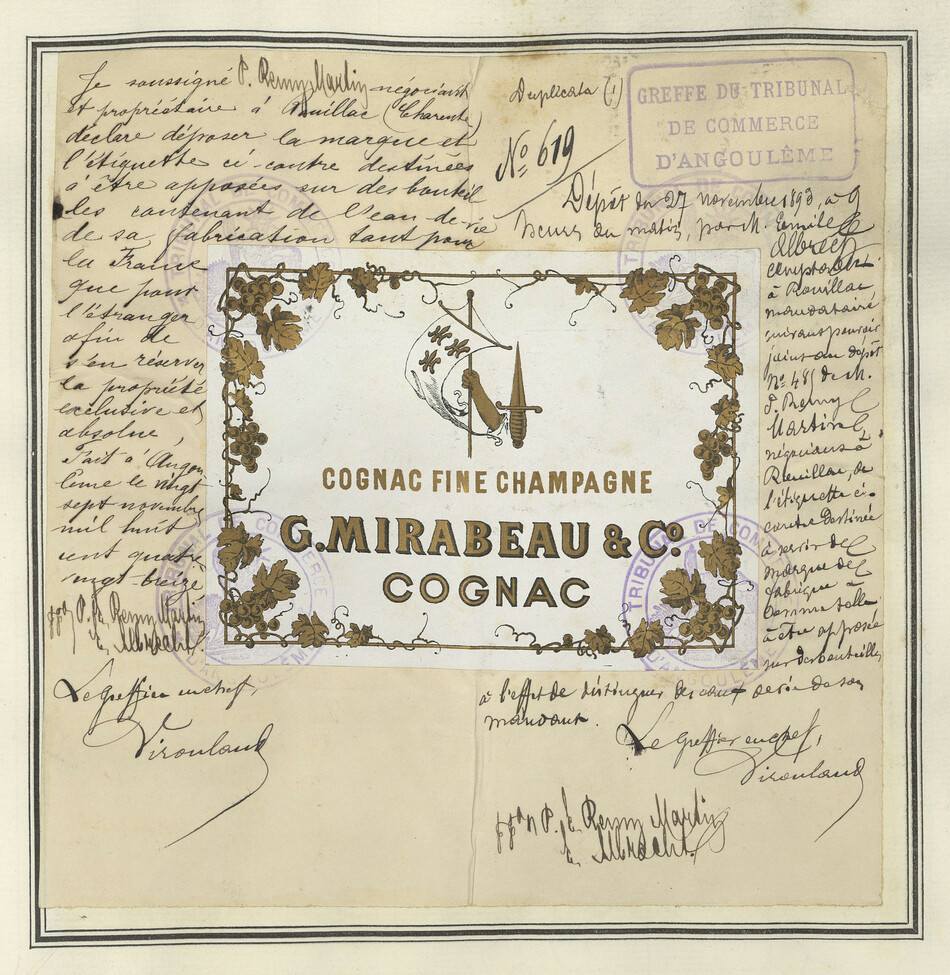 Je soussigné P. Remy Martin négociant
et propriétaire à Rouillac (Charente)
déclare déposer la marque et
l'étiquette ci-contre destinées
à être apposées sur des bouteil
les contenant de l'eau-de-vie
de sa fabrication tant pour
la France
que pour
l'étranger
afin de
s'en réserver
la propriété
exclusive et
absolue,
Fait à Angou
lême le vingt
sept novembre
mil huit
cent quatre
vingt treize
P. E. Remy Martin
E. Albrecht
Le Greffier en chef,
Virouland
Duplicata (1)
No 619
GREFFE DU TRIBUNAL
DE COMMERCE
D'ANGOULÊME
Dépôt du 27 novembre 1893, à 9
heures du matin, par M. Emile
Albrecht
comptable
à Rouillac
mandataire
suivant pouvoir
joint au dépôt
No 481 de M.
P. Remy
Martin,
négociant à
Rouillac, de
l'étiquette ci-
contre destinée
à servir de
marque de
fabrique &
commerciale
à être apposée
sur des bouteilles
à l'effet de distinguer des eaux de vie de son
mandant.
Le Greffier en chef,
Virouland
P. E. Remy Martin
E. Albrecht
COGNAC FINE CHAMPAGNE
G. MIRABEAU & Co.
COGNAC
TRIBUNAL DE COMMERCE
D'ANGOULÊME